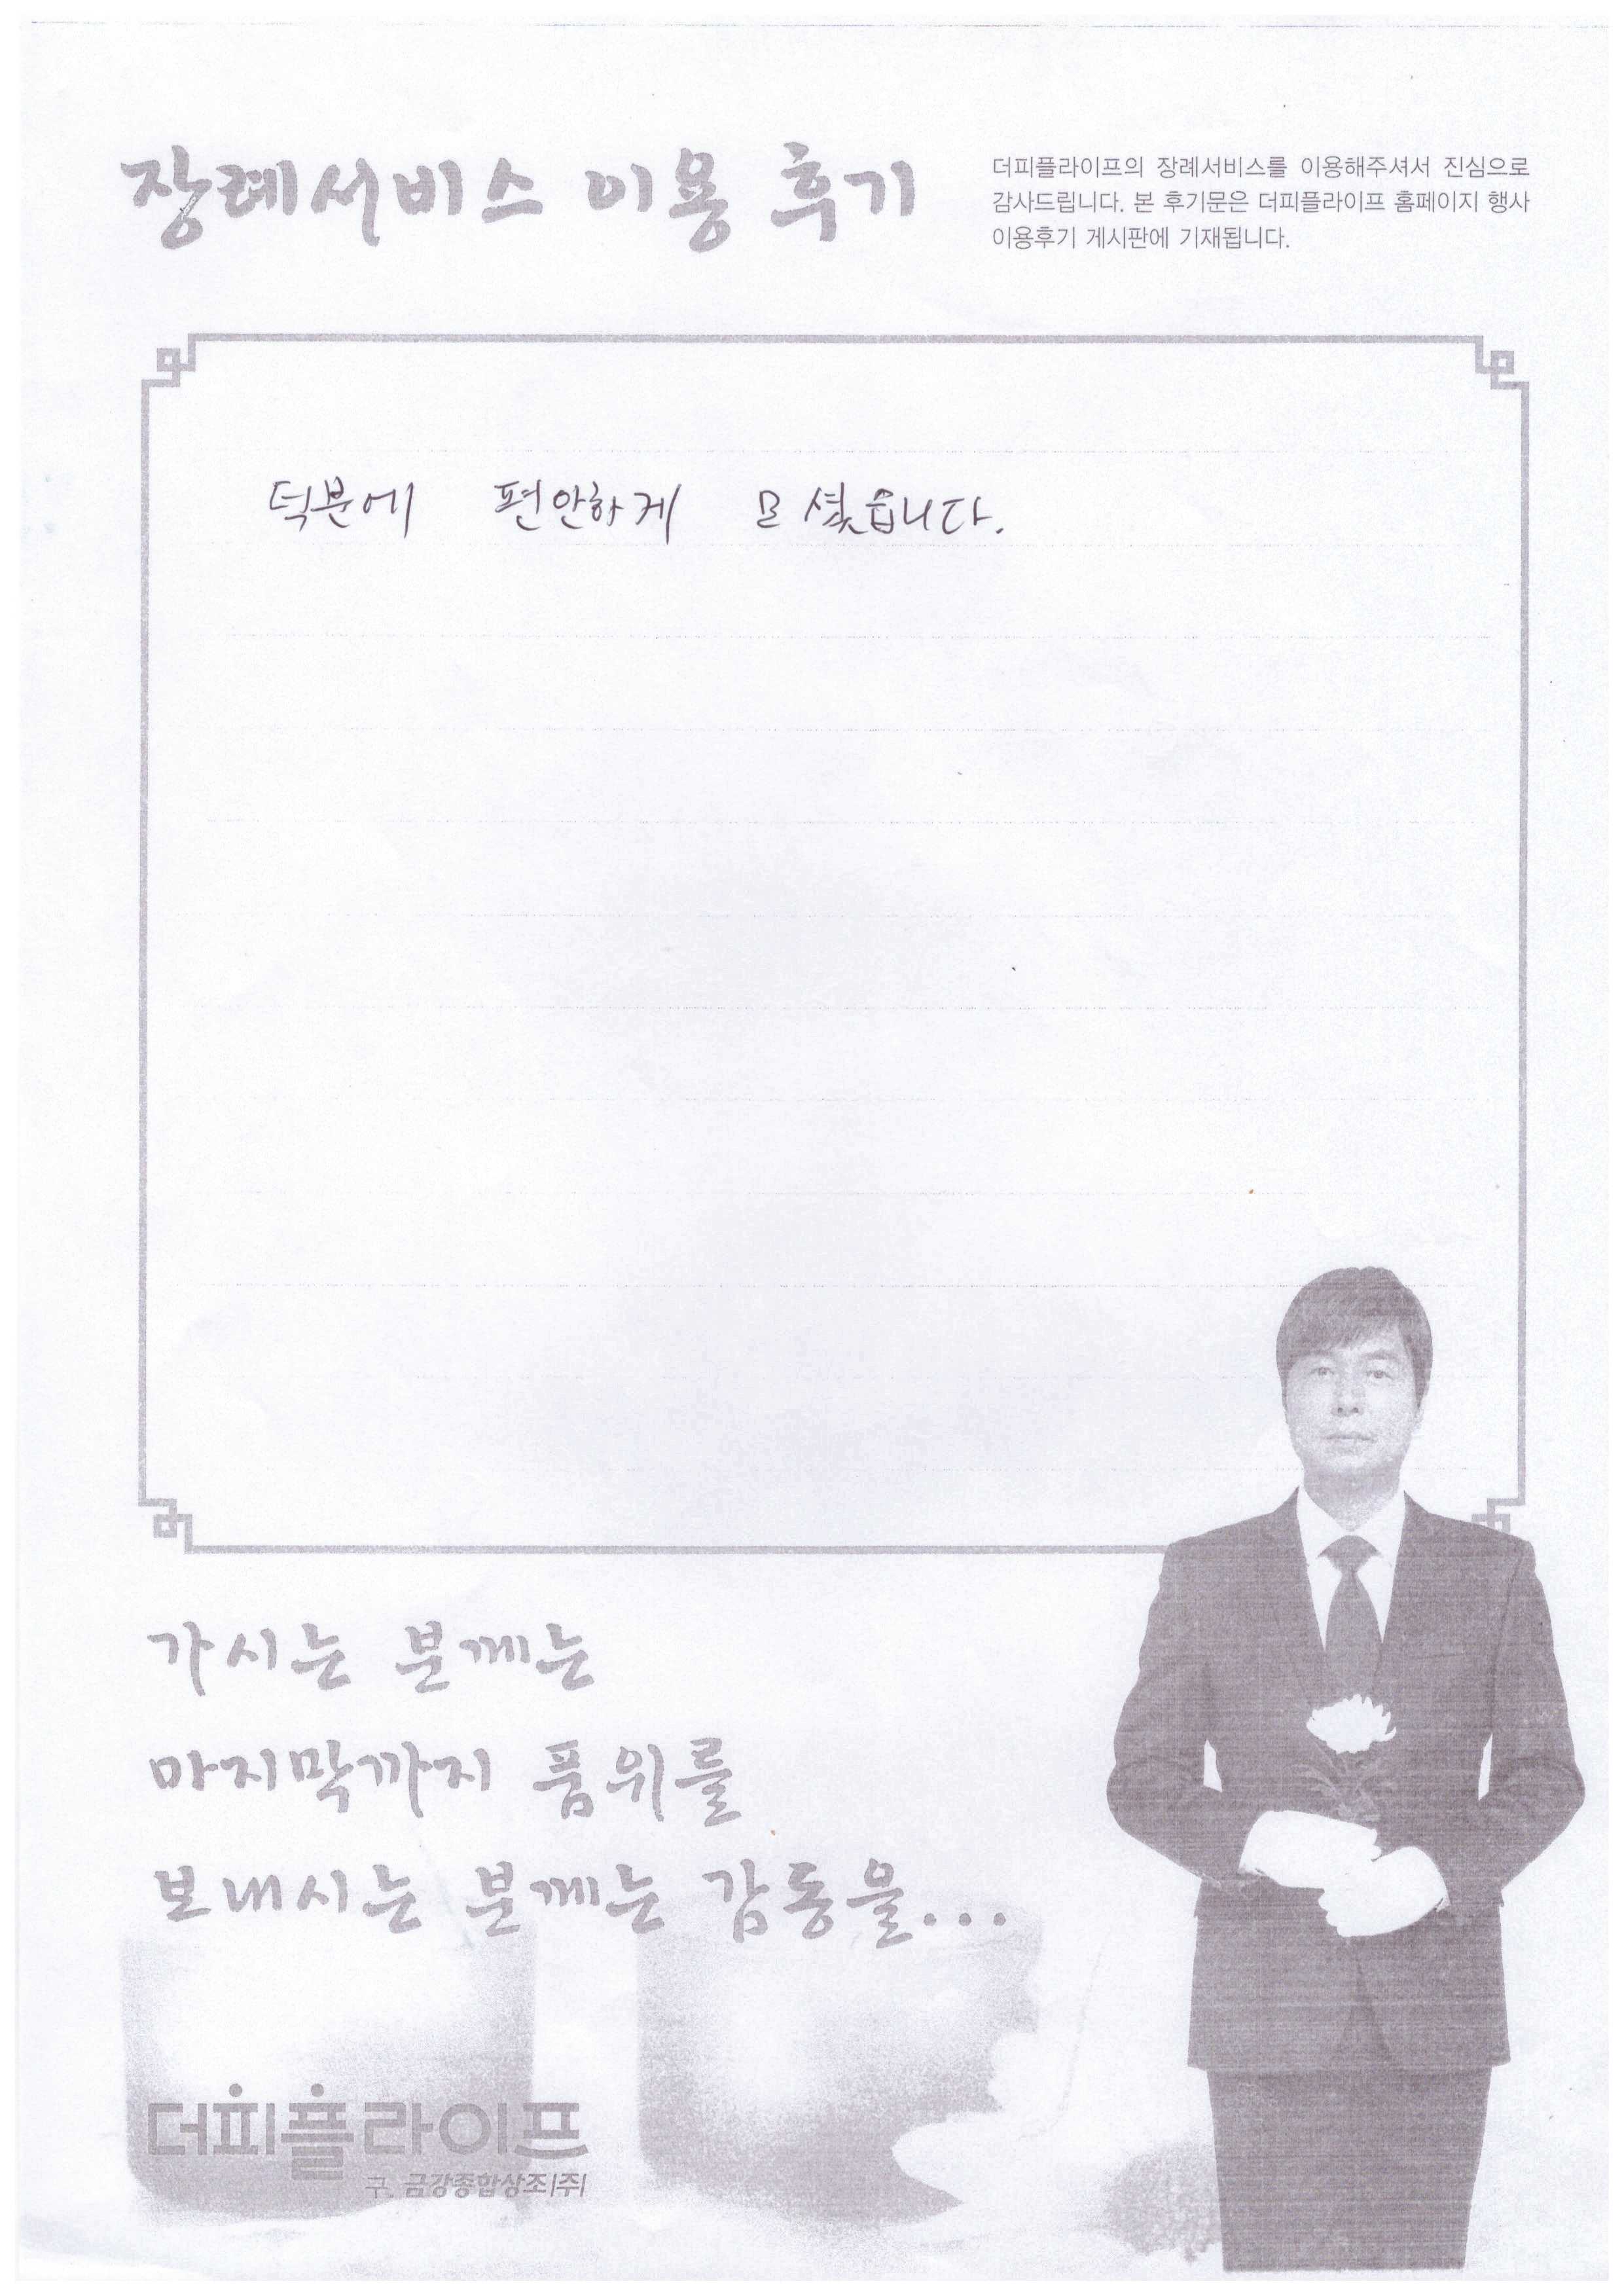 장례서비스 이용 후기
더피플라이프의 장례서비스를 이용해주셔서 진심으로
감사드립니다. 본 후기문은 더피플라이프 홈페이지 행사
이용후기 게시판에 기재됩니다.
덕분에 편안하게 모셨읍니다.
가시는 분께는
마지막까지 품위를
보내시는 분께는 감동을...
더피플라이프
구. 금강종합상조|주|